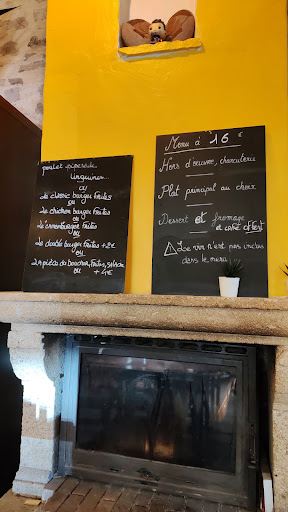 poulet piperade
linguines
ou
le classic burger frites
ou
le chicken burger frites
ou
le burger frites
ou
le double burger frites + 2€
ou
la pièce du boucher, frites, salade
+ 4€
Menu à 16 €
Hors d'oeuvre, charcuterie
Plat principal au choix
Dessert et fromage
et café offert
Le vin n'est pas inclus
dans le menu